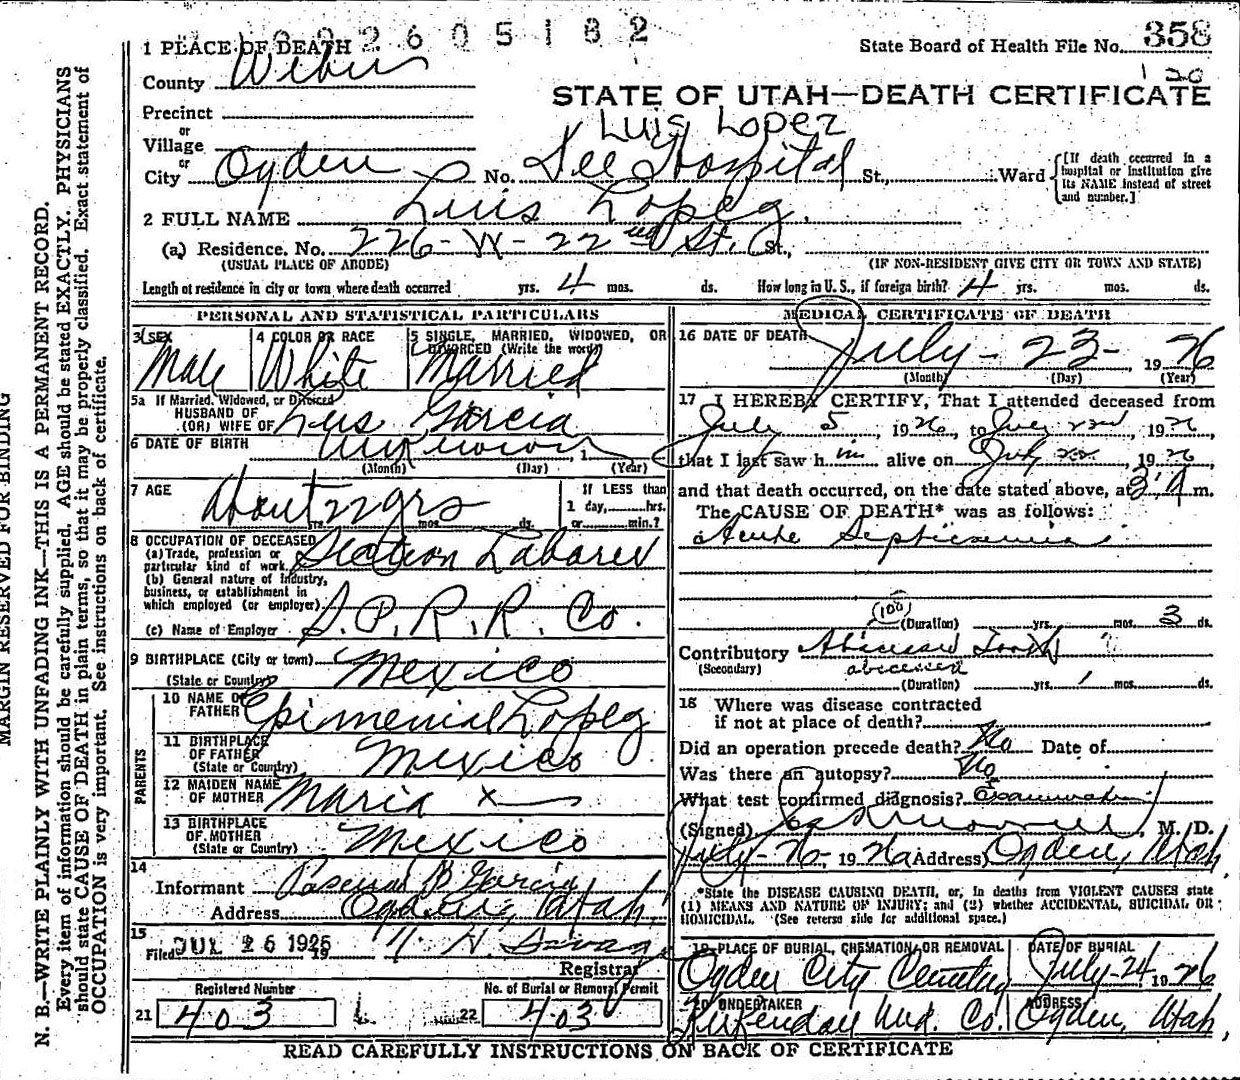 1926 05182
358
1 PLACE OF DEATH
State Board of Health File No.
120
County Weber
STATE OF UTAH—DEATH CERTIFICATE
Precinct
Luis Lopez
or
Village
or
City Ogden No. Dee Hospital St., Ward [If death occurred in a hospital or institution give its NAME instead of street and number.]
2 FULL NAME Luis Lopez
(a) Residence. No. 226-W-22nd St. St.,
(USUAL PLACE OF ABODE) (IF NON-RESIDENT GIVE CITY OR TOWN AND STATE)
Length of residence in city or town where death occurred yrs. 4 mos. ds. How long in U. S., if foreign birth? 4 yrs. mos. ds.
PERSONAL AND STATISTICAL PARTICULARS
3 SEX Male
4 COLOR OR RACE White
5 SINGLE, MARRIED, WIDOWED, OR DIVORCED (Write the word) Married
5a If Married, Widowed, or Divorced
HUSBAND OF
(OR) WIFE OF Luis Garcia
6 DATE OF BIRTH Unknown 1
(Month) (Day) (Year)
7 AGE About 22 yrs
yrs. mos. ds.
If LESS than
1 day, hrs.
or min.?
8 OCCUPATION OF DECEASED
(a) Trade, profession or
particular kind of work. Section Laborer
(b) General nature of Industry,
business, or establishment in
which employed (or employer)
(c) Name of Employer S. P. R. R. Co.
9 BIRTHPLACE (City or town)
(State or Country) Mexico
PARENTS
10 NAME OF
FATHER Epimenial Lopez
11 BIRTHPLACE
OF FATHER
(State or Country) Mexico
12 MAIDEN NAME
OF MOTHER Maria x
13 BIRTHPLACE
OF MOTHER
(State or Country) Mexico
14
Informant Pascual B Garcia
Address Ogden, Utah.
15
Filed JUL 26 1926 19
Registrar
Registered Number
21 403
No. of Burial or Removal Permit
22 403
MEDICAL CERTIFICATE OF DEATH
16 DATE OF DEATH July - 23 - 1926
(Month) (Day) (Year)
17 I HEREBY CERTIFY, That I attended deceased from
July 5, 1926, to July 22nd, 1926,
that I last saw him alive on July 22, 1926,
and that death occurred, on the date stated above, at 3 A m.
The CAUSE OF DEATH* was as follows:
Acute Septicemia
(100)
(Duration) yrs. mos. 3 ds.
Contributory Abscessed Tooth ?
(Secondary) abscessed
(Duration) yrs. 1 mos. ds.
18 Where was disease contracted
if not at place of death?
Did an operation precede death? No Date of
Was there an autopsy? No
What test confirmed diagnosis? Examination
(Signed) , M. D.
July-26, 1926 (Address) Ogden, Utah,
*State the DISEASE CAUSING DEATH, or, in deaths from VIOLENT CAUSES state
(1) MEANS AND NATURE OF INJURY; and (2) whether ACCIDENTAL, SUICIDAL OR
HOMICIDAL. (See reverse side for additional space.)
19 PLACE OF BURIAL, CREMATION, OR REMOVAL Ogden City Cemetery
DATE OF BURIAL July-24 1926
20 UNDERTAKER Kirkendall Und. Co.
ADDRESS Ogden, Utah,
READ CAREFULLY INSTRUCTIONS ON BACK OF CERTIFICATE
MARGIN RESERVED FOR BINDING
N. B.—WRITE PLAINLY WITH UNFADING INK—THIS IS A PERMANENT RECORD.
Every item of information should be carefully supplied. AGE should be stated EXACTLY. PHYSICIANS
should state CAUSE OF DEATH in plain terms, so that it may be properly classified. Exact statement of
OCCUPATION is very important. See instructions on back of certificate.